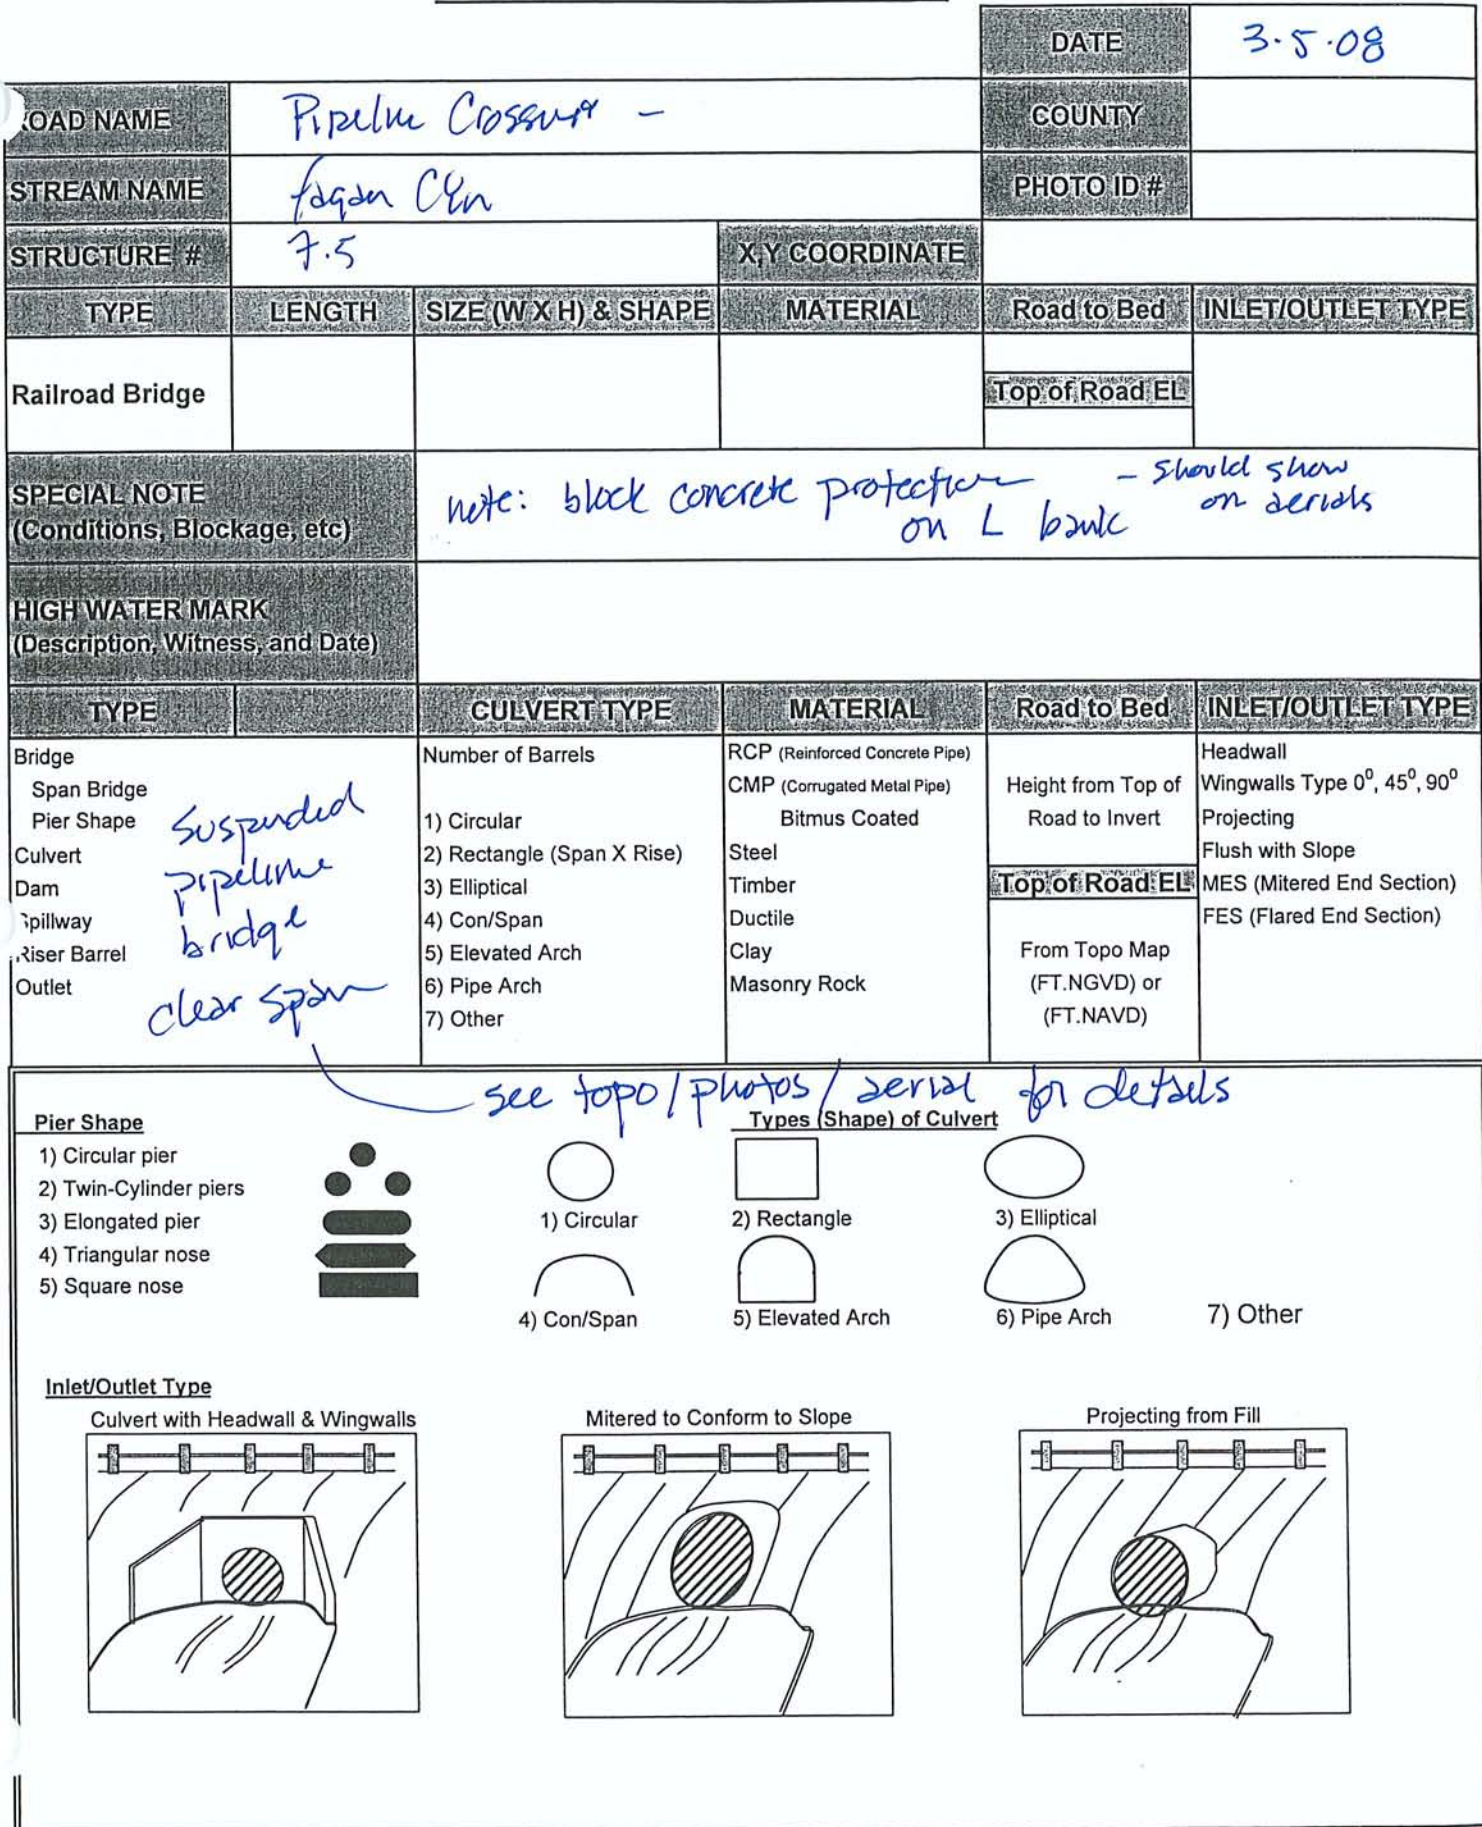 DATE 3.5.08
ROAD NAME Pipeline Crossing -
COUNTY
STREAM NAME fagan Cyn
PHOTO ID #
STRUCTURE # 7.5
X,Y COORDINATE
TYPE LENGTH SIZE (W X H) & SHAPE MATERIAL Road to Bed INLET/OUTLET TYPE
Railroad Bridge
Top of Road EL
SPECIAL NOTE
(Conditions, Blockage, etc)
note: block concrete protection
on L bank
- should show
on aerials
HIGH WATER MARK
(Description, Witness, and Date)
TYPE CULVERT TYPE MATERIAL Road to Bed INLET/OUTLET TYPE
Bridge
Span Bridge
Pier Shape
Culvert
Dam
Spillway
Riser Barrel
Outlet
Suspended
pipeline
bridge
clear span
Number of Barrels
1) Circular
2) Rectangle (Span X Rise)
3) Elliptical
4) Con/Span
5) Elevated Arch
6) Pipe Arch
7) Other
RCP (Reinforced Concrete Pipe)
CMP (Corrugated Metal Pipe)
Bitmus Coated
Steel
Timber
Ductile
Clay
Masonry Rock
Height from Top of
Road to Invert
Top of Road EL
From Topo Map
(FT.NGVD) or
(FT.NAVD)
Headwall
Wingwalls Type 0⁰, 45⁰, 90⁰
Projecting
Flush with Slope
MES (Mitered End Section)
FES (Flared End Section)
see topo/photos/aerial for details
Pier Shape
1) Circular pier
2) Twin-Cylinder piers
3) Elongated pier
4) Triangular nose
5) Square nose
Types (Shape) of Culvert
1) Circular
2) Rectangle
3) Elliptical
4) Con/Span
5) Elevated Arch
6) Pipe Arch
7) Other
Inlet/Outlet Type
Culvert with Headwall & Wingwalls
Mitered to Conform to Slope
Projecting from Fill